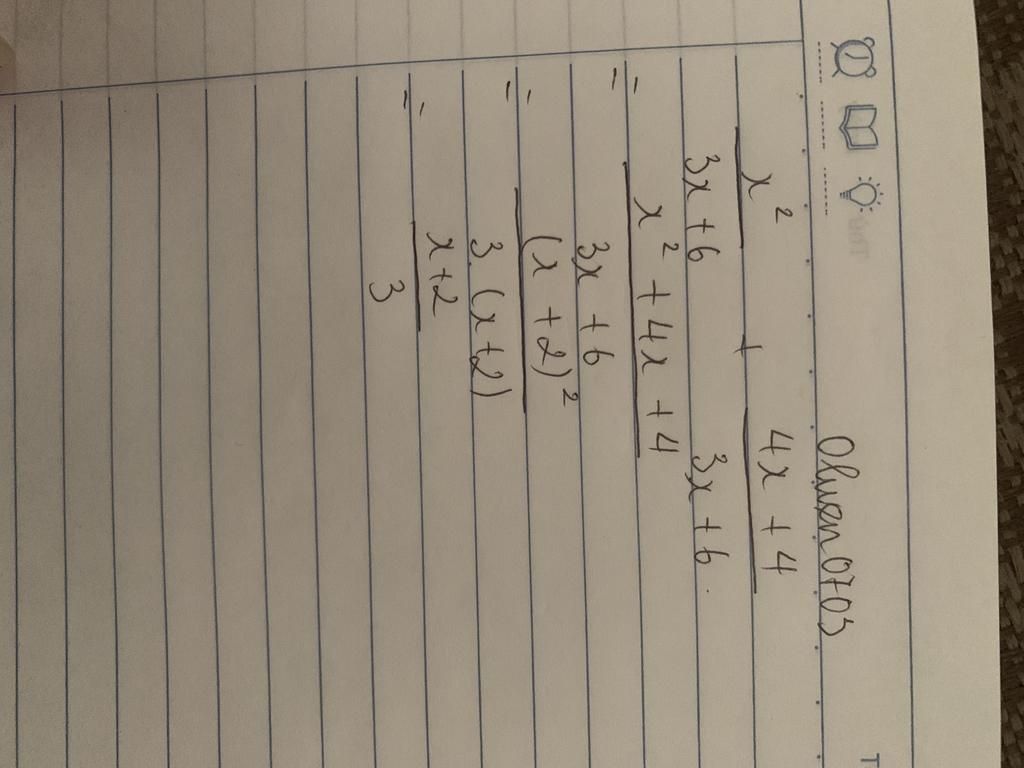 Oluuen0703
x²/3x+6 + 4x + 4/3x + 6.
= x² + 4x + 4/3x + 6
= (x + 2)²/3 (x+2)
= x+2/3